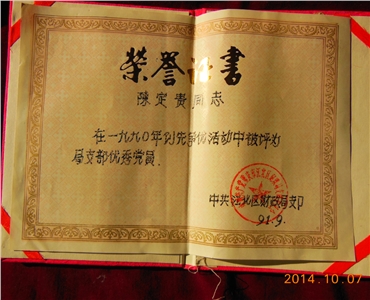 荣誉证书
陳定贵同志
在一九九〇年创先争优活动中被评为
局支部优秀党员.
中共江北区财政局支部
91.9.
2014.10.07